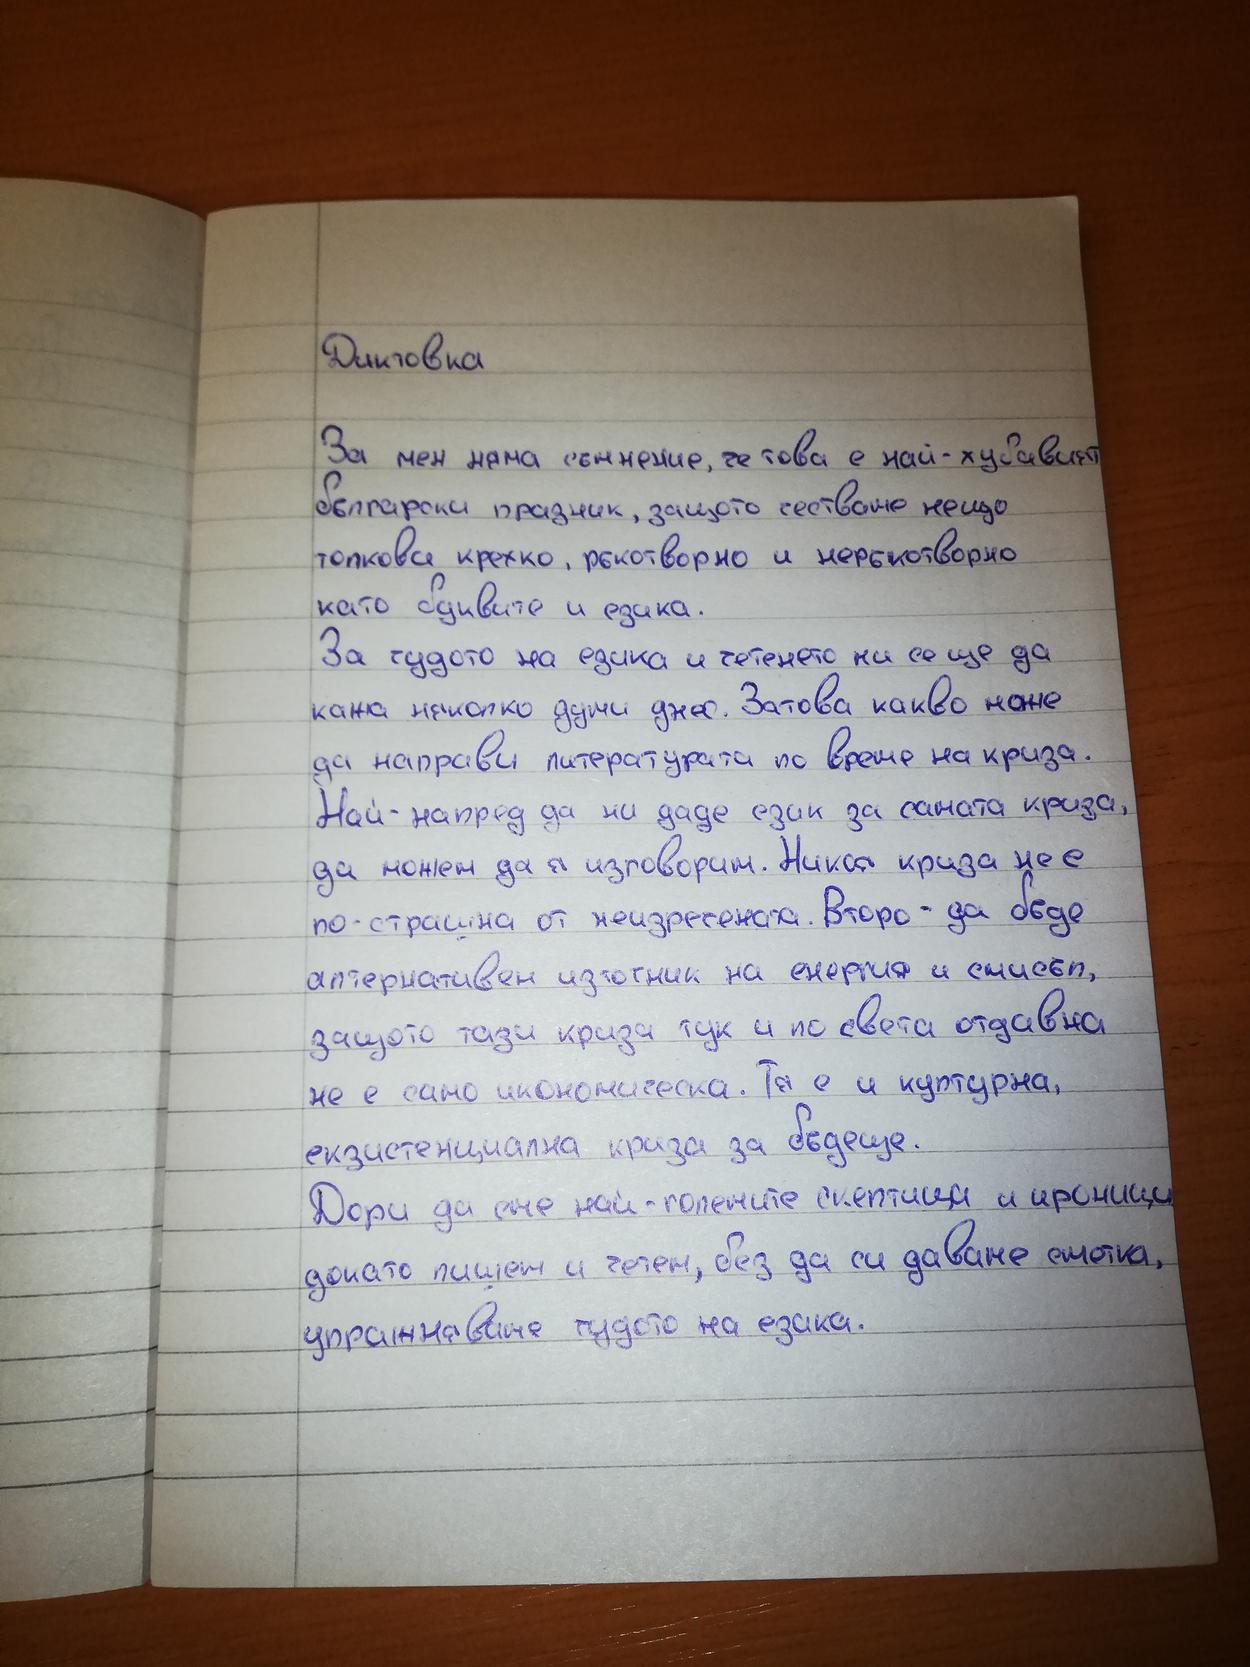 Диктовка
За мен няма съмнение, че това е най-хубавият
български празник, защото честваме нещо
толкова крехко, ръкотворно и неръкотворно
като буквите и езика.
За чудото на езика и четенето ми се ще да
кажа няколко думи днес. Затова какво може
да направи литературата по време на криза.
Най-напред да ни даде език за самата криза,
да можем да я изговорим. Никоя криза не е
по-страшна от неизречената. Второ - да бъде
алтернативен източник на енергия и смисъл,
защото тази криза тук и по света отдавна
не е само икономическа. Тя е и културна,
екзистенциална криза за бъдеще.
Дори да сме най-големите скептици и ироници
докато пишем и четем, без да си даваме сметка,
упражняваме чудото на езика.